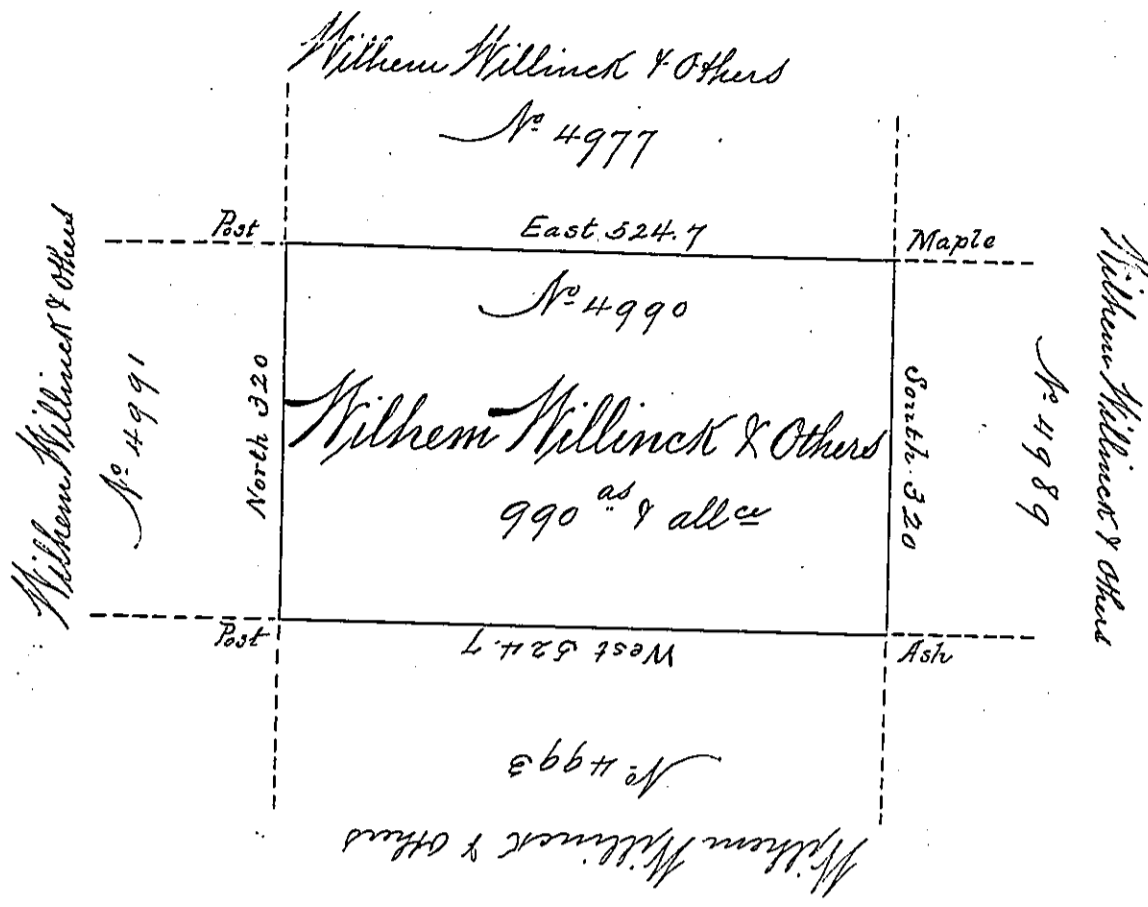 Wilhem Willinck & Others
No 4977
Post
East 524.7
Maple
No 4990
Wilhem Willinck & Others
No 4991
North 320
Wilhem Willinck & Others
990 as & allce
South 320
No 4989
Wilhem Willinck & Others
Post
West 524.7
Ash
No 4993
Wilhem Willinck & Others